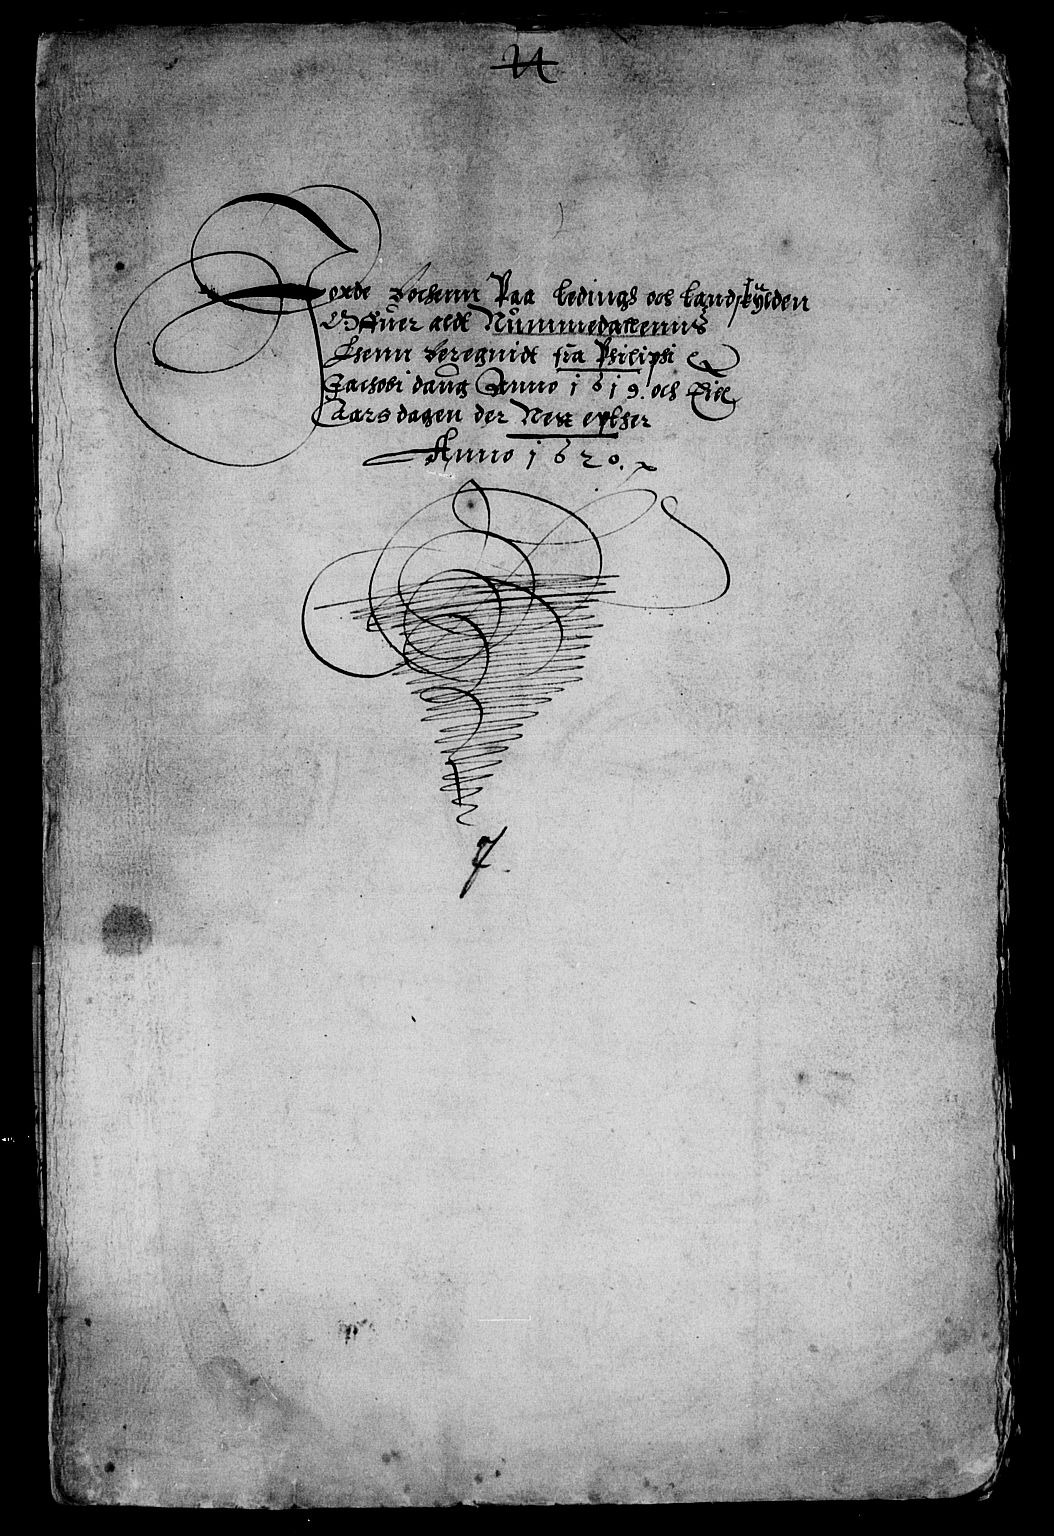 Jorde Bochenn Paa Ledings och Landskÿlden
Offuer aldt Nummedallenns
Lhenn Beregnidt fra Philipi &
Jachobi daug Anno 1619. och Till
Aarsdagen der Nest epther
Anno 1620.